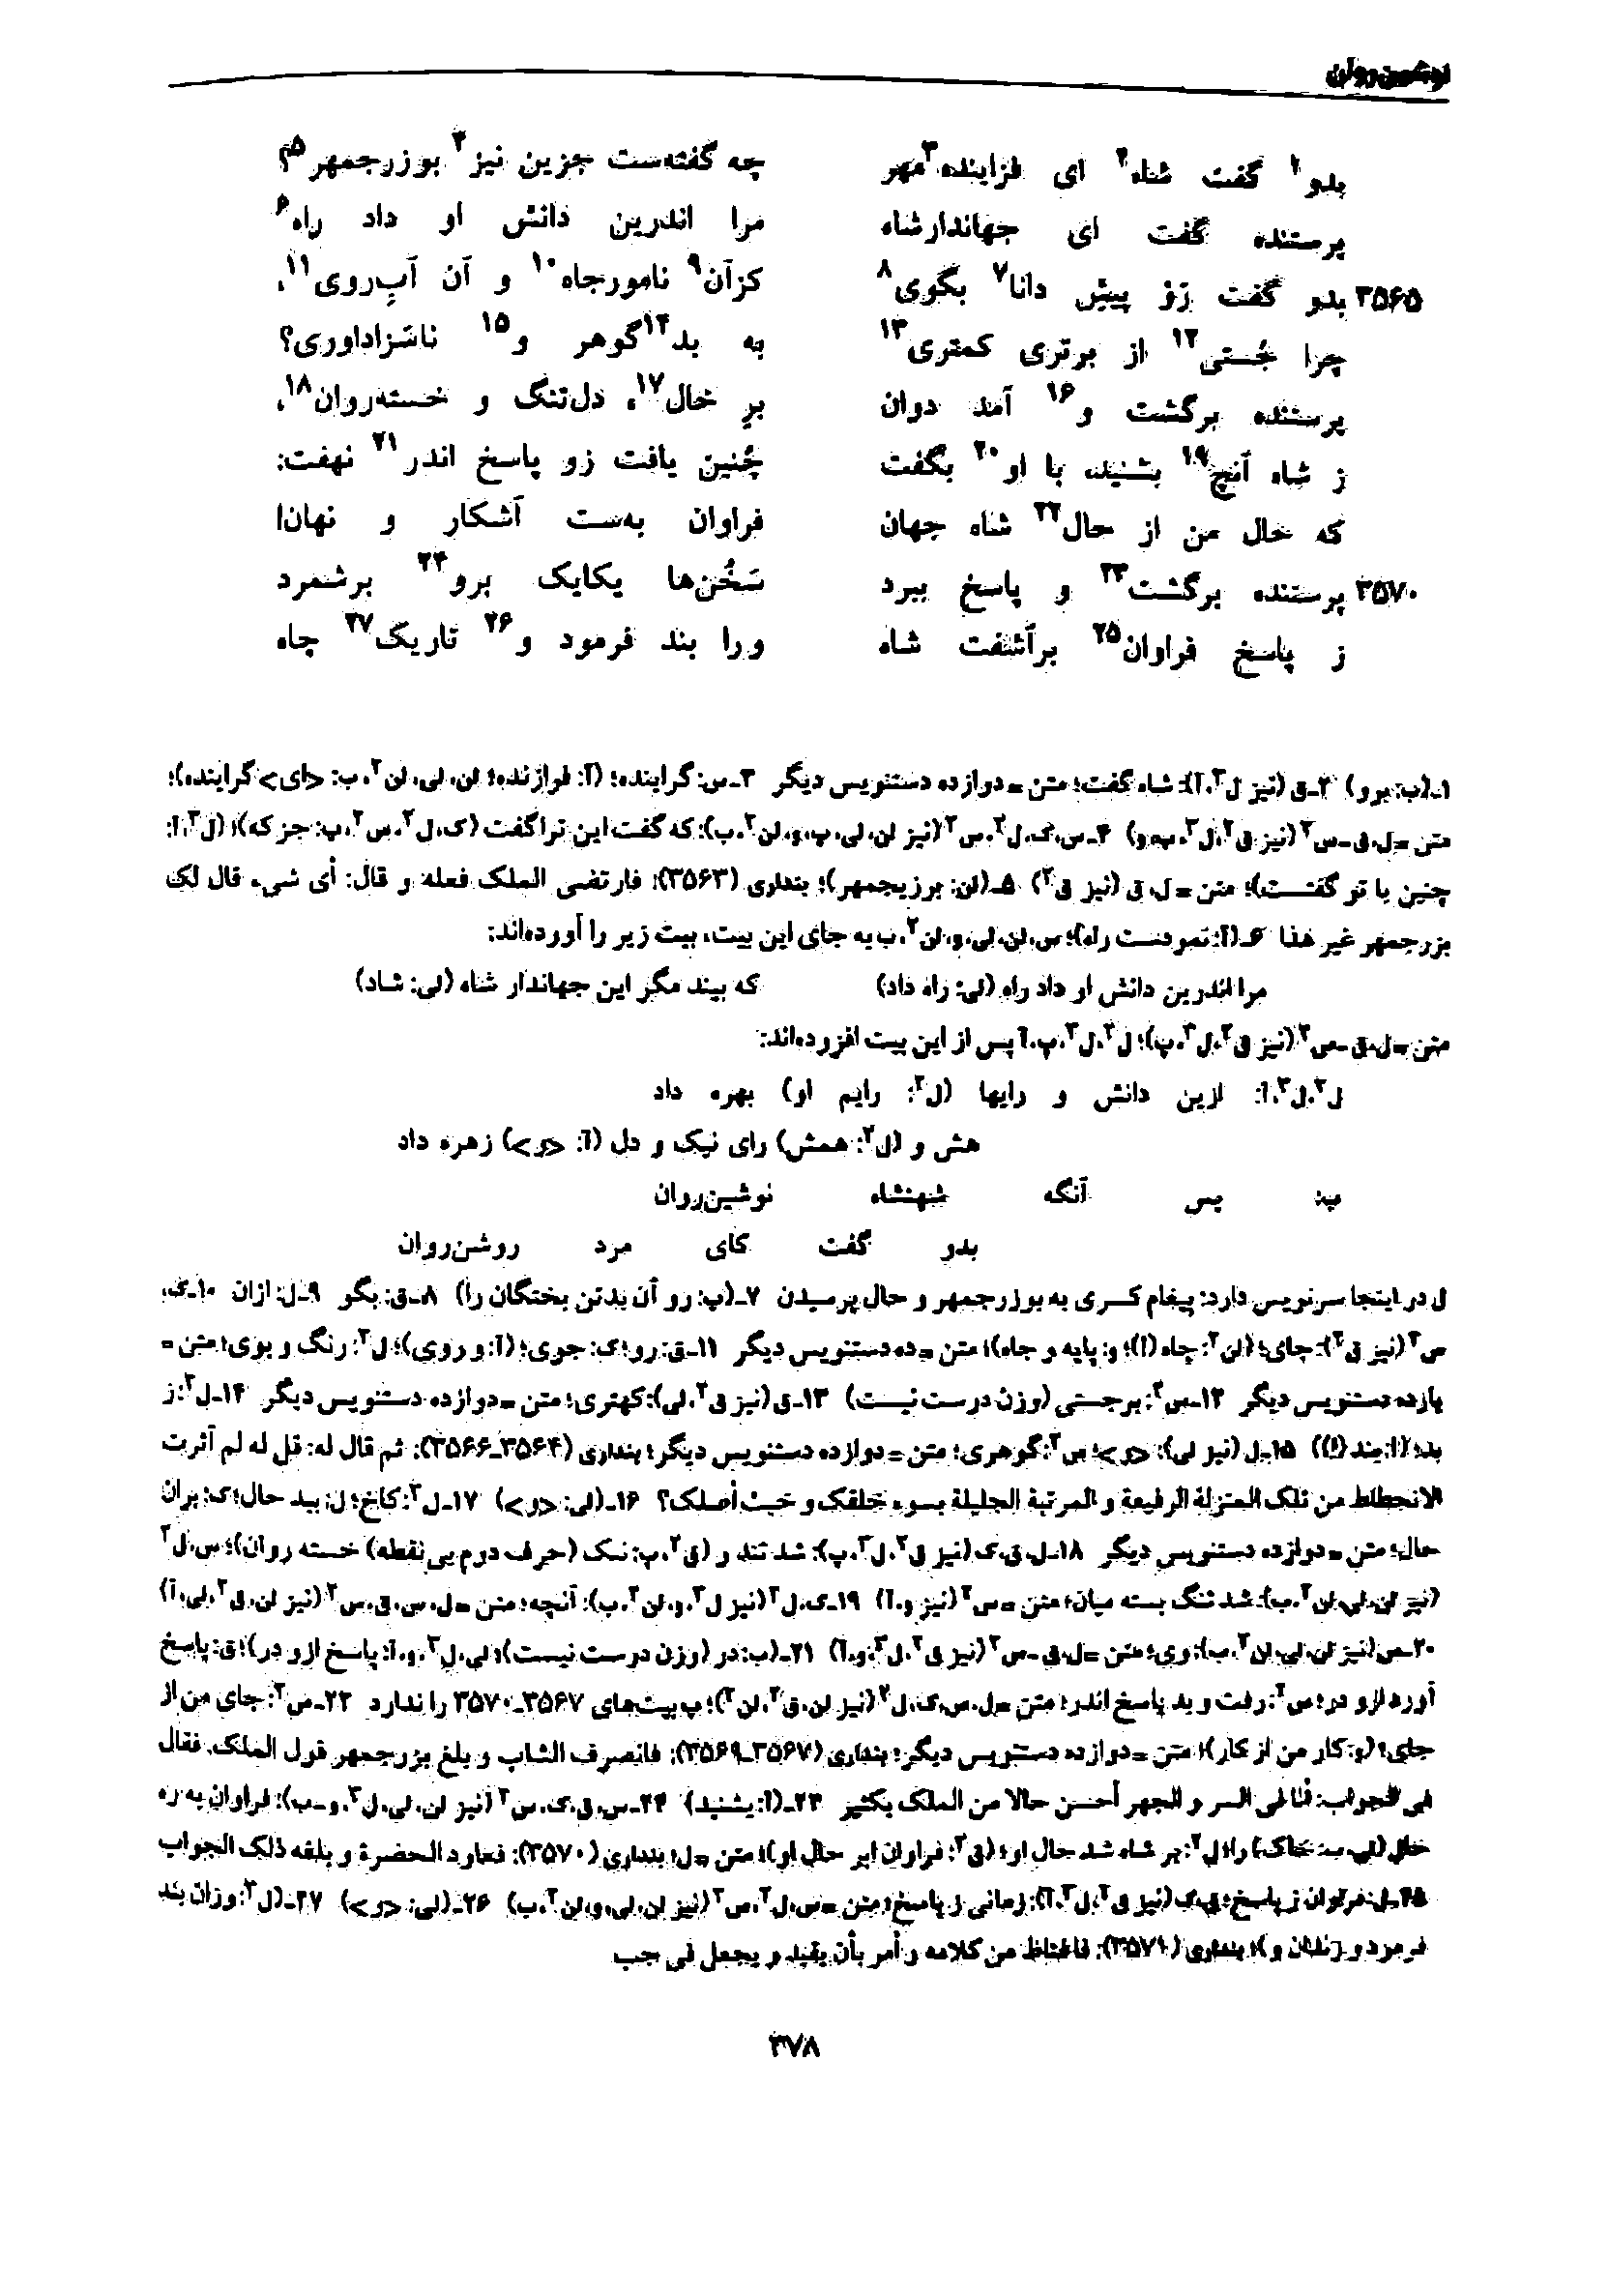 نوشین‌روان
بدو۱ گفت شاه۲ ای فزاینده۳ مهر چه گفته‌ست جزین نیز۴ بوزرجمهر۵؟
پرستنده گفت ای جهاندارشاه مرا اندرین دانش او داد راه۶
۳۵۶۵ بدو گفت رَوْ پیشِ دانا۷ بگوی۸ کزآن۹ نامورجاه۱۰ و آن آبِ‌روی۱۱،
چرا جُستی۱۲ از برتری کمتری۱۳ به بد۱۴گوهر و۱۵ ناسَزاداوری؟
پرستنده برگشت و۱۶ آمد دوان برِ خال۱۷، دل‌تنگ و خسته‌روان۱۸،
ز شاه آنچ۱۹ بشنید، با او۲۰ بگفت چُنین یافت زو پاسخ اندر۲۱ نهفت:
که حال من از حال۲۲ شاه جهان فراوان به‌ست آشکار و نهان!
۳۵۷۰ پرستنده برگشت۲۳ و پاسخ ببرد سَخُن‌ها یکایک برو۲۴ برشمرد
ز پاسخ فراوان۲۵ برآشفت شاه ورا بند فرمود و۲۶ تاریک۲۷ چاه
۱ـ(ب: برو) ۲ـ ق (نیز ل۳، آ): شاه گفت؛ متن = دوازده دستنویس دیگر ۳ـ س: گراینده؛ (آ: فرازنده؛ لن، لی، لن۲، ب: <ای> گراینده)؛
متن = ل، ق ـ س۲ (نیز ق۲، ل۳، پ، و) ۴ـ س، ک، ل۲، س۲ (نیز لن، لی، پ، و، لن۲، ب): که گفت این تراگفت (ک، ل۲، س۲، پ: جز که)؛ (ل۳، آ:
چنین با تو گفتست)؛ متن = ل، ق (نیز ق۲) ۵ـ (لن: برزیجمهر)؛ بنداری (۳۵۶۳): فارتضی الملک فعله و قال: أی شیء قال لک
بزرجمهر غیر هذا ۶ـ (آ: نمودست راه)؛ س، لن، لی، و، لن۲، ب به جای این بیت، بیت زیر را آورده‌اند:
مرا اندرین دانش او داد راه (لی: راه داد) که بیند مگر این جهاندار شاه (لی: شاد)
متن = ل، ق ـ س۲ (نیز ق۲، ل۳، پ)؛ ل۲، ل۳، پ، آ پس از این بیت افزوده‌اند:
ل۲، ل۳، آ: ازین دانش و رایها (ل۳: رایم او) بهره داد
هش و (ل۳: همش) رای نیک و دل (آ: <و>) زهره داد
پ: پس آنگه شهنشاه نوشین‌روان
بدو گفت کای مرد روشن‌روان
ل در اینجا سرنویس دارد: پیغام کسری به بوزرجمهر و حال پرسیدن ۷ـ (پ: رو آن بدتن بختگان را) ۸ـ ق: بگو ۹ـ ل: ازان ۱۰ـ ک،
س۲ (نیز ق۲): جای؛ (لن۲: چاه (!)؛ و: پایه و جاه)؛ متن = ده دستنویس دیگر ۱۱ـ ق: رو؛ ک: جوی؛ (آ: و روی)؛ ل۲: رنگ و بوی؛ متن =
یازده دستنویس دیگر ۱۲ـ س۲: برجستی (وزن درست نیست) ۱۳ـ ق (نیز ق۲، لی): کهتری؛ متن = دوازده دستنویس دیگر ۱۴ـ ل۲: ز
بد؛ (آ: بند (!)) ۱۵ـ ل (نیز لی): <و>؛ س۲: گوهری؛ متن = دوازده دستنویس دیگر؛ بنداری (۳۵۶۴ـ۳۵۶۶): ثم قال له: قل له لم آثرت
الانحطاط من تلک المنزلة الرفیعة و المرتبة الجلیلة بسوء خلقک و خبث أصلک؟ ۱۶ـ (لی: <و>) ۱۷ـ ل۲: کاخ؛ ل: بید حال؛ ک: بران
حال؛ متن = دوازده دستنویس دیگر ۱۸ـ ل، ق، ک (نیز ق۲، ل۳، پ): شد تند و (ق۲، پ: نک (حرف دوم بی‌نقطه) خسته روان)؛ س، ل۲
(نیز لن، لی، لن۲، ب): شد تنگ بسته میان؛ متن = س۲ (نیز و، آ) ۱۹ـ ک، ل۲ (نیز ل۳، و، لن۲، ب): آنچه؛ متن = ل، س، ق، س۲ (نیز لن، ق۲، لی، آ)
۲۰ـ س (نیز لن، لی، لن۲، ب): وی؛ متن = ل، ق ـ س۲ (نیز ق۲، ل۳، و، آ) ۲۱ـ (ب: در (وزن درست نیست)؛ لی، ل۳، و، آ: پاسخ ازو در)؛ ق: پاسخ
آورد ازو در؛ س۲: رفت و بد پاسخ اندر؛ متن = ل، س، ک، ل۲ (نیز لن، ق۲، لن۲)؛ پ بیت‌های ۳۵۶۷ـ۳۵۷۰ را ندارد ۲۲ـ س۲: جای من از
جای؛ (و: کار من از کار)؛ متن = دوازده دستنویس دیگر؛ بنداری (۳۵۶۷ـ۳۵۶۹): فانصرف الشاب و بلغ بزرجمهر قول الملک. فقال
فی الجواب: أنا فی السر و الجهر أحسن حالا من الملک بکثیر ۲۳ـ (آ: بشنید) ۲۴ـ س، ق، ک، س۲ (نیز لن، لی، ل۳، و ـ ب): فراوان به ره
خال (لی، ب: خاک) را؛ ل۲: بر شاه شد حال او؛ (ق۲: فراوان ابر حال او)؛ متن = ل؛ بنداری (۳۵۷۰): فعاود الحضرة و بلغه ذلک الجواب
۲۵ـ ل: فراوان ز پاسخ؛ ق، ک (نیز ق۲، ل۳، آ): زمانی ز پاسخ؛ متن = س، ل۲، س۲ (نیز لن، لی، و، لن۲، ب) ۲۶ـ (لی: <و>) ۲۷ـ (ل۳: وزان بند
فرمود و زندان و)؛ بنداری (۳۵۷۱): فاغتاظ من کلامه و أمر بأن یقید و یجعل فی جب
۳۷۸